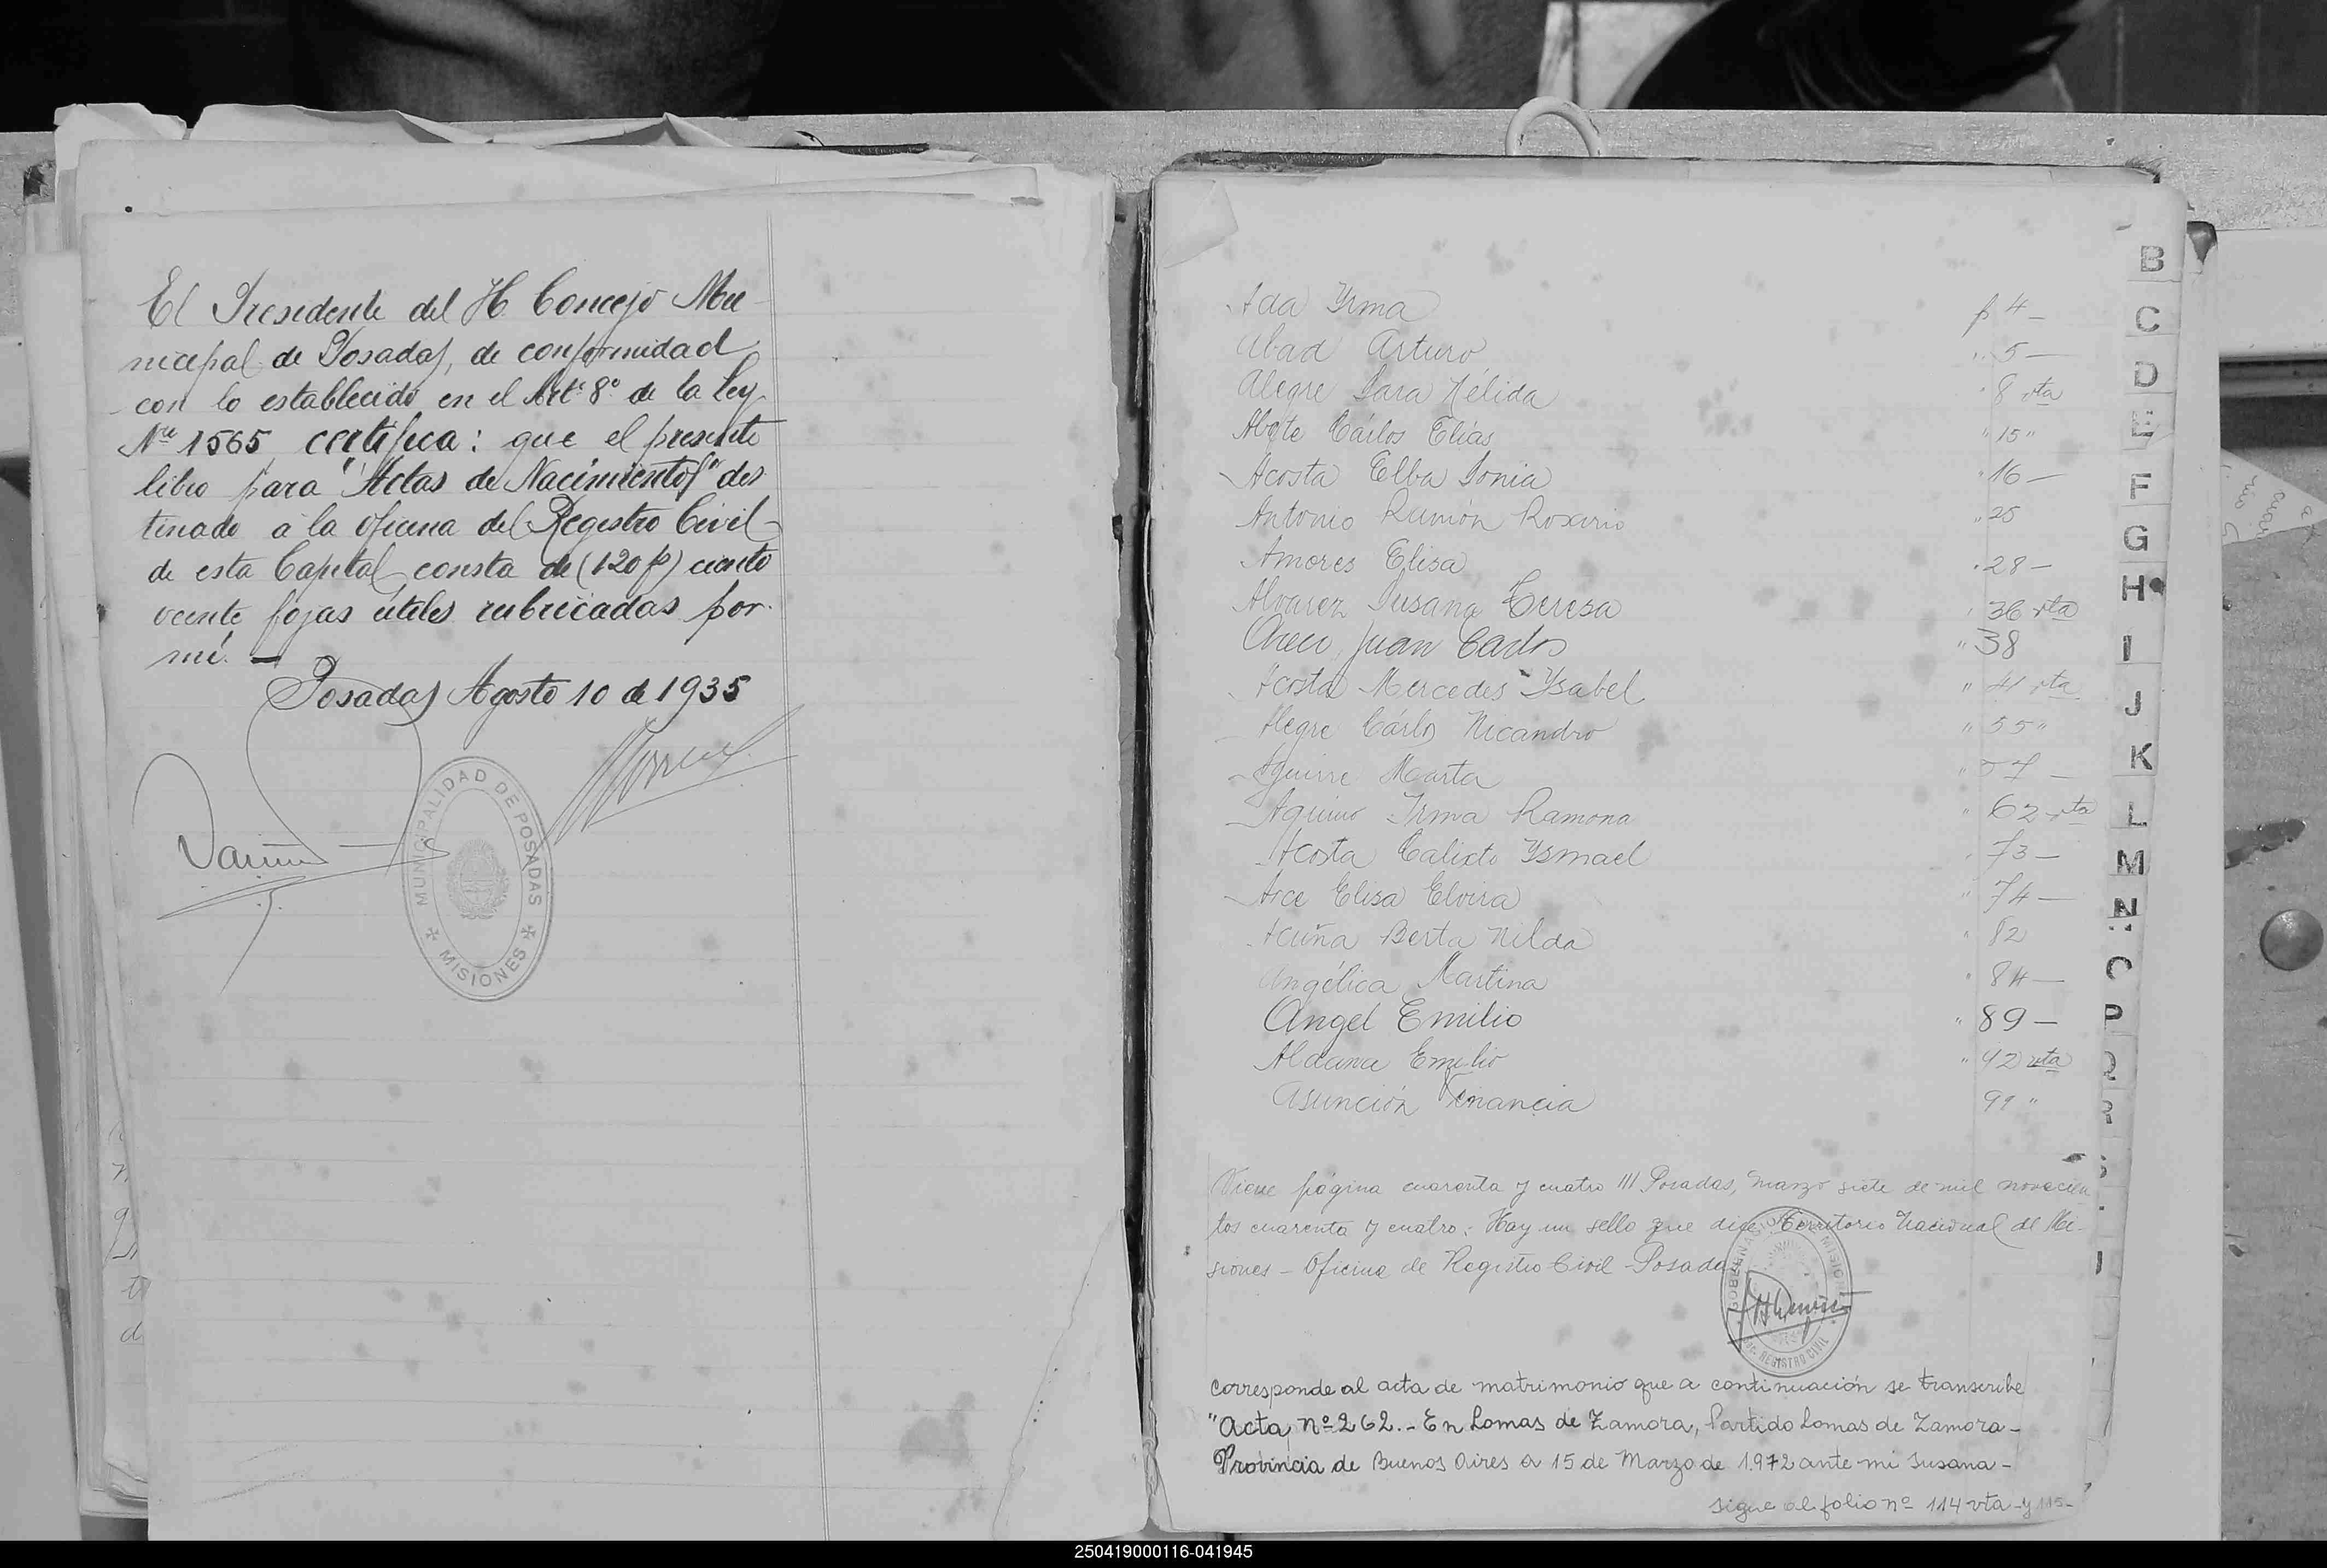 El Presidente del H. Concejo Mu-
nicipal de Posadas, de conformidad
con lo establecido en el Art. 8º de la Ley
Nº 1565 certifica: que el presente
libro para "Actas de Nacimientos" des
tinado á la oficina del Registro Civil
de esta Capital consta de (120 f) ciento
veinte fojas útiles rubricadas por
mí. —
Posadas Agosto 10 de 1935
MUNICIPALIDAD DE POSADAS
MISIONES
Ada Yrma f 4 —
Abad Arturo " 5 —
Alegre Sara Nélida " 8 vta
Abate Cárlos Elías " 15 "
Acosta Elba Sonia " 16 —
Antonio Ramón Rosario " 25
Amores Elisa " 28 —
Alvarez Susana Teresa " 36 vta
Areco Juan Carlos " 38
Acosta Mercedes Ysabel " 41 vta
Alegre Cárlos Nicandro " 55 "
Aguirre Marta " 57 —
Aquino Irma Ramona " 62 vta
Acosta Calixto Ysmael " 73 —
Arce Elisa Elvira " 74 —
Acuña Berta Nilda " 82
Angélica Martina " 84 —
Angel Emilio " 89 —
Aldana Emilio " 92 vta
Asunción Venancia 99 "
Viene página cuarenta y cuatro /// Posadas, Marzo siete de mil novecien
tos cuarenta y cuatro: Hay un sello que dice Territorio Nacional de Mi-
siones - Oficina de Registro Civil - Posadas
GOBERNACION DE MISIONES
REGISTRO CIVIL
Corresponde al acta de matrimonio que a continuación se transcribe
"Acta, nº 262. - En Lomas de Zamora, Partido Lomas de Zamora -
Provincia de Buenos Aires a 15 de Marzo de 1.972 ante mi Susana -
sigue al folio nº 114 vta - y 115 -
B
C
D
E
F
G
H
I
J
K
L
M
N
O
P
Q
R
250419000116-041945